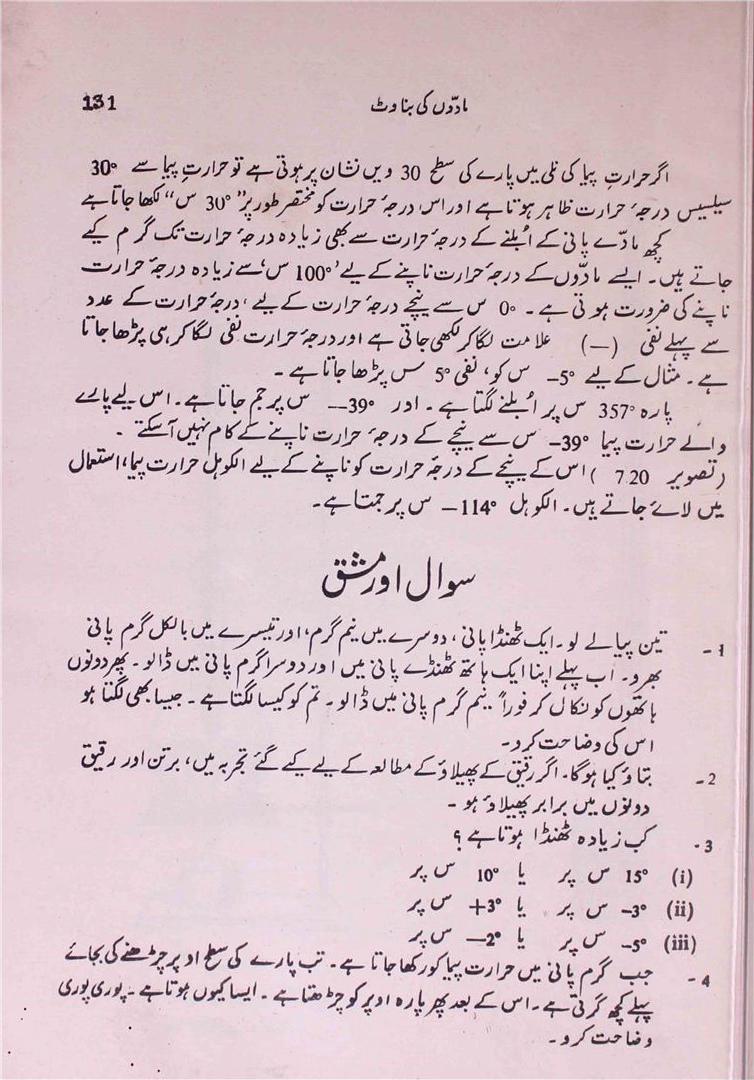 131 مادّوں کی بناوٹ
اگر حرارت پیما کی نلی میں پارے کی سطح 30 ویں نشان پر ہوتی ہے تو حرارت پیما سے 30°
سیلسیس درجۂ حرارت ظاہر ہوتا ہے اور اس درجۂ حرارت کو مختصر طور پر ”30° س“ لکھا جاتا ہے
کچھ مادّے پانی کے اُبلنے کے درجۂ حرارت سے بھی زیادہ درجۂ حرارت تک گرم کیے
جاتے ہیں۔ ایسے مادّوں کے درجۂ حرارت ناپنے کے لیے ’100° س‘ سے زیادہ درجۂ حرارت
ناپنے کی ضرورت ہوتی ہے۔ 0° س سے نیچے درجۂ حرارت کے لیے، درجۂ حرارت کے عدد
سے پہلے نفی (—) علامت لگا کر لکھی جاتی ہے اور درجۂ حرارت نفی لگا کر ہی پڑھا جاتا
ہے۔ مثال کے لیے 5°– س کو، نفی 5° س پڑھا جاتا ہے۔
پارہ 357° س پر اُبلنے لگتا ہے۔ اور 39°— س پر جم جاتا ہے۔ اس لیے پارے
والے حرارت پیما 39°– س سے نیچے کے درجۂ حرارت ناپنے کے کام نہیں آ سکتے۔
(تصویر 7.20) اس کے نیچے کے درجۂ حرارت کو ناپنے کے لیے الکوہل حرارت پیما، استعمال
میں لائے جاتے ہیں۔ الکوہل 114°– س پر جمتا ہے۔
سوال اور مشق
1- تین پیالے لو۔ ایک ٹھنڈا پانی، دوسرے میں نیم گرم، اور تیسرے میں بالکل گرم پانی
بھرو۔ اب پہلے اپنا ایک ہاتھ ٹھنڈے پانی میں اور دوسرا گرم پانی میں ڈالو۔ پھر دونوں
ہاتھوں کو نکال کر فوراً نیم گرم پانی میں ڈالو۔ تم کو کیسا لگتا ہے۔ جیسا بھی لگتا ہو
اس کی وضاحت کرو۔
2- بتاؤ کیا ہوگا۔ اگر رقیق کے پھیلاؤ کے مطالعہ کے لیے کیے گئے تجربہ میں، برتن اور رقیق
دونوں میں برابر پھیلاؤ ہو۔
3- کب زیادہ ٹھنڈا ہوتا ہے؟
(i) 15° س پر یا 10° س پر
(ii) 3°– س پر یا 3°+ س پر
(iii) 5°– س پر یا 2°– س پر
4- جب گرم پانی میں حرارت پیما کو رکھا جاتا ہے۔ تب پارے کی سطح اوپر چڑھنے کی بجائے
پہلے کچھ گرتی ہے۔ اس کے بعد پھر پارہ اوپر کو چڑھتا ہے۔ ایسا کیوں ہوتا ہے۔ پوری پوری
وضاحت کرو۔